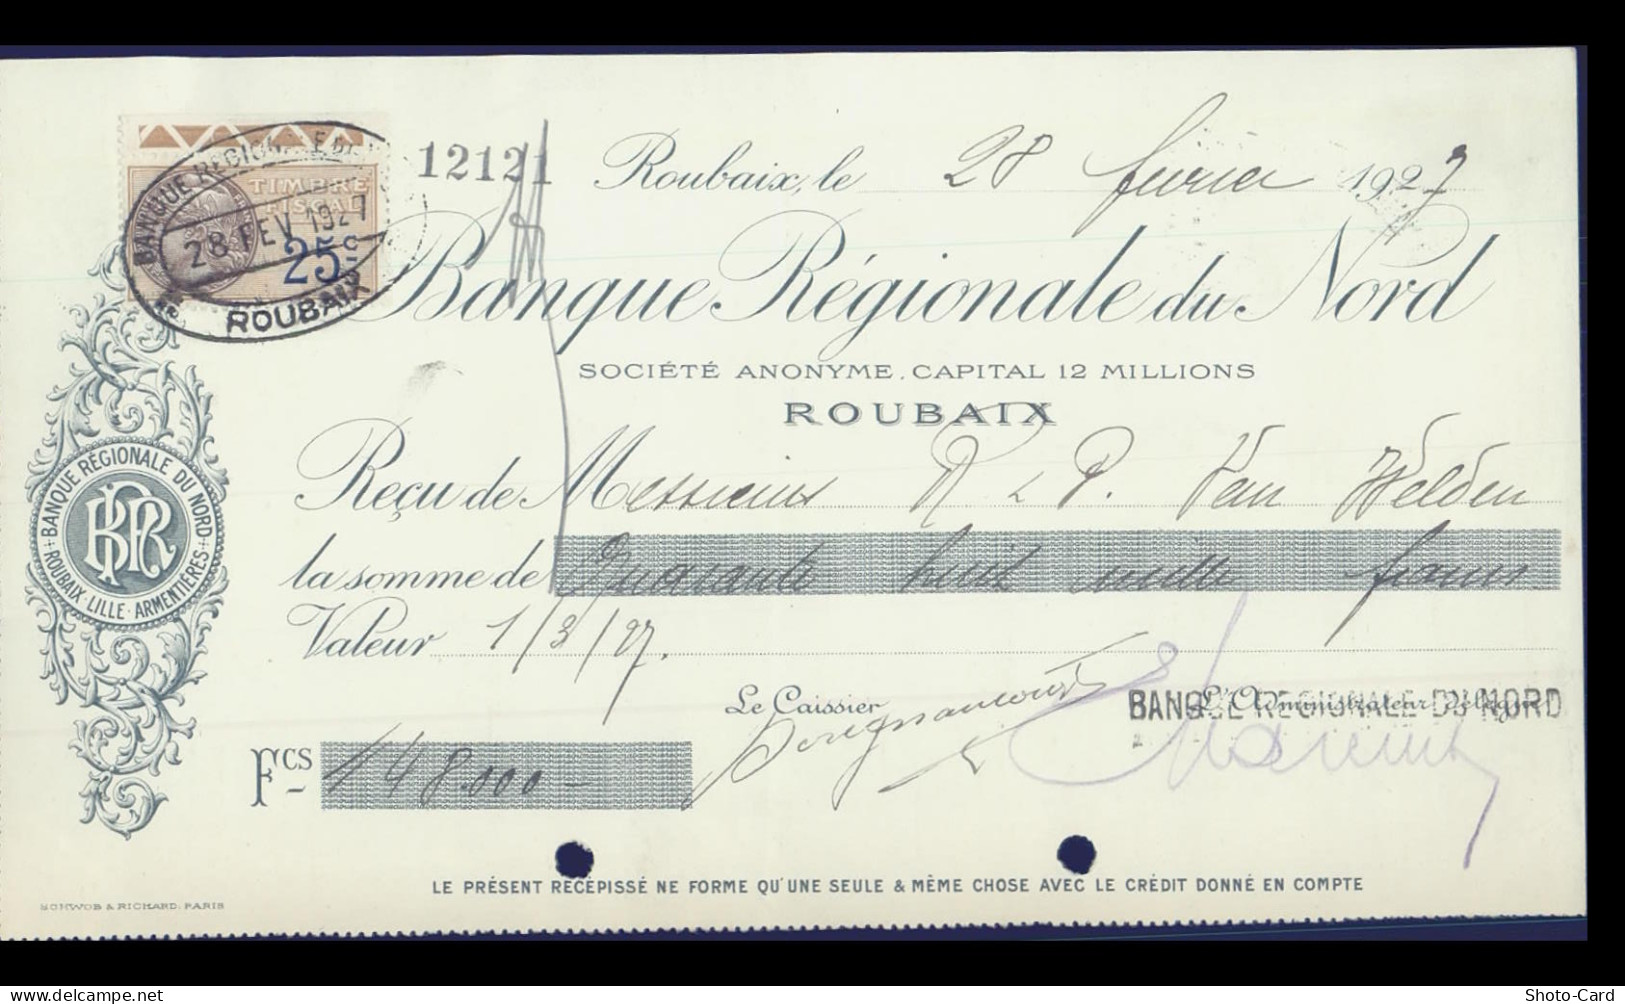 12121
Roubaix, le 28 février 1927
BANQUE REGIONALE DU
TIMBRE
FISCAL
28 FEV 1927
25 c
ROUBAIX
Banque Régionale du Nord
SOCIÉTÉ ANONYME. CAPITAL 12 MILLIONS
ROUBAIX
BANQUE RÉGIONALE DU NORD
BRN
ROUBAIX · LILLE · ARMENTIÈRES
Reçu de Messieurs R & P. Van Welden
la somme de Quarante huit mille francs
Valeur 1/3/27.
Le Caissier
L'Administrateur Délégué
BANQUE REGIONALE DU NORD
Fcs 48.000 –
LE PRÉSENT RECÉPISSÉ NE FORME QU'UNE SEULE & MÊME CHOSE AVEC LE CRÉDIT DONNÉ EN COMPTE
SCHWOB & RICHARD. PARIS
Shoto-Card